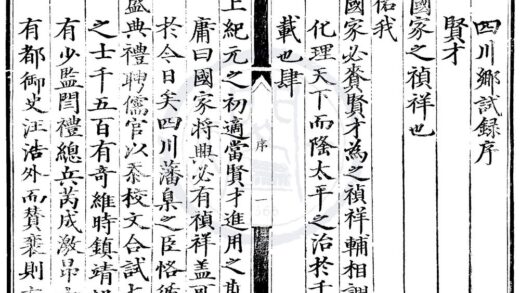 四川鄉試録序
賢才
國家之禎祥也
佑我
國家必賚賢才為之禎祥輔相調
化理天下而隆太平之治於千
載也肆
序
一
上紀元之初適當賢才進用之
庸曰國家將興必有禎祥蓋
於今日矣四川藩臬之臣恪循
盛典禮聘儒官以叅校文合試
之士千五百有奇維時鎮靖
有少監閻禮總兵芮成激昂
有都御史汪浩外而賛襄則